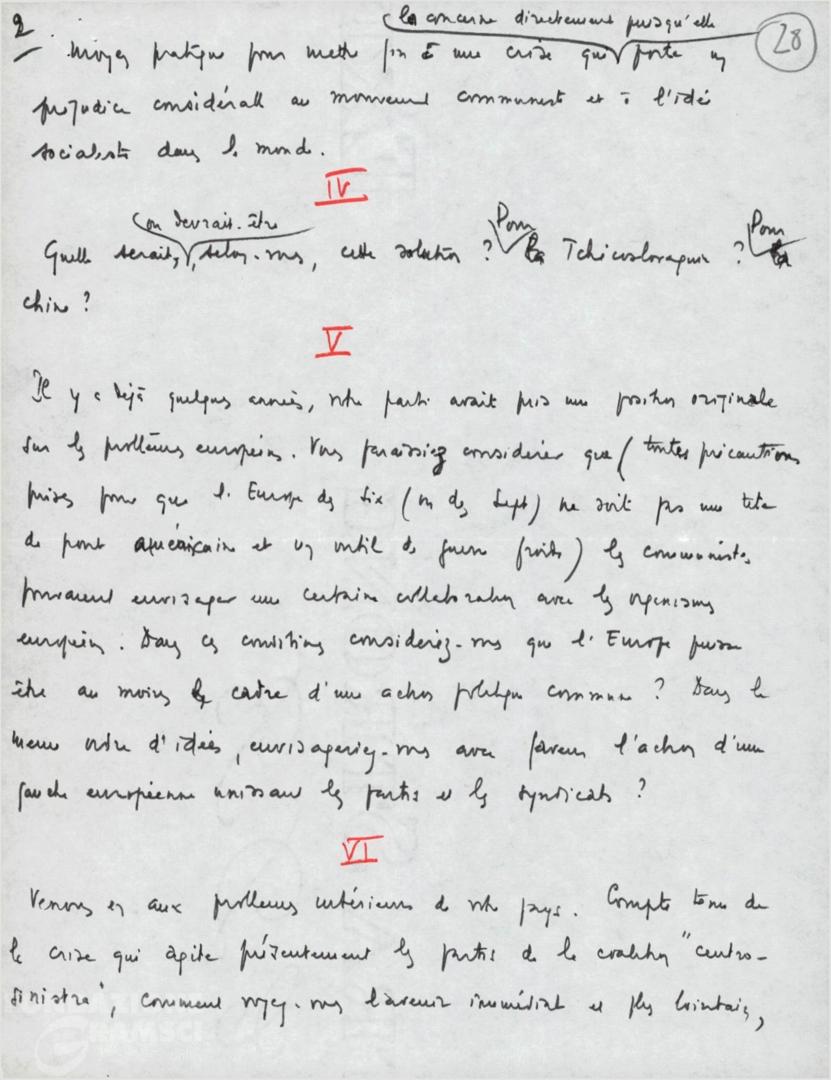 2
28
la concerne directement puisqu'elle
moyen pratique pour mettre fin à une crise qui porte un
préjudice considérable au mouvement communiste et à l'idée
socialiste dans le monde.
IV
ou devrait-être
Pour
Pour
Quelle serait, selon-vous, cette solution ? la Tchécoslovaquie ? la
Chine ?
V
Il y a déjà quelques années, votre parti avait pris une position originale
sur les problèmes européens. Vous paraissiez considérer que (toutes précautions
prises pour que l'Europe des Six (ou des Sept) ne soit pas une tête
de pont américaine et un outil de guerre froide) les communistes
pouvaient envisager une certaine collaboration avec les organismes
européens. Dans ces conditions considérez-vous que l'Europe puisse
être au moins le cadre d'une action politique commune ? Dans le
même ordre d'idées, envisageriez-vous avec faveur l'action d'une
gauche européenne unissant les partis et les syndicats ?
VI
Venons en aux problèmes intérieurs de votre pays. Compte tenu de
la crise qui agite présentement les partis de la coalition "centro-
sinistra", comment voyez-vous l'avenir immédiat et plus lointain,
GRAMSCI